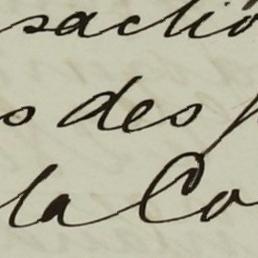 sactio
s des f
la Co